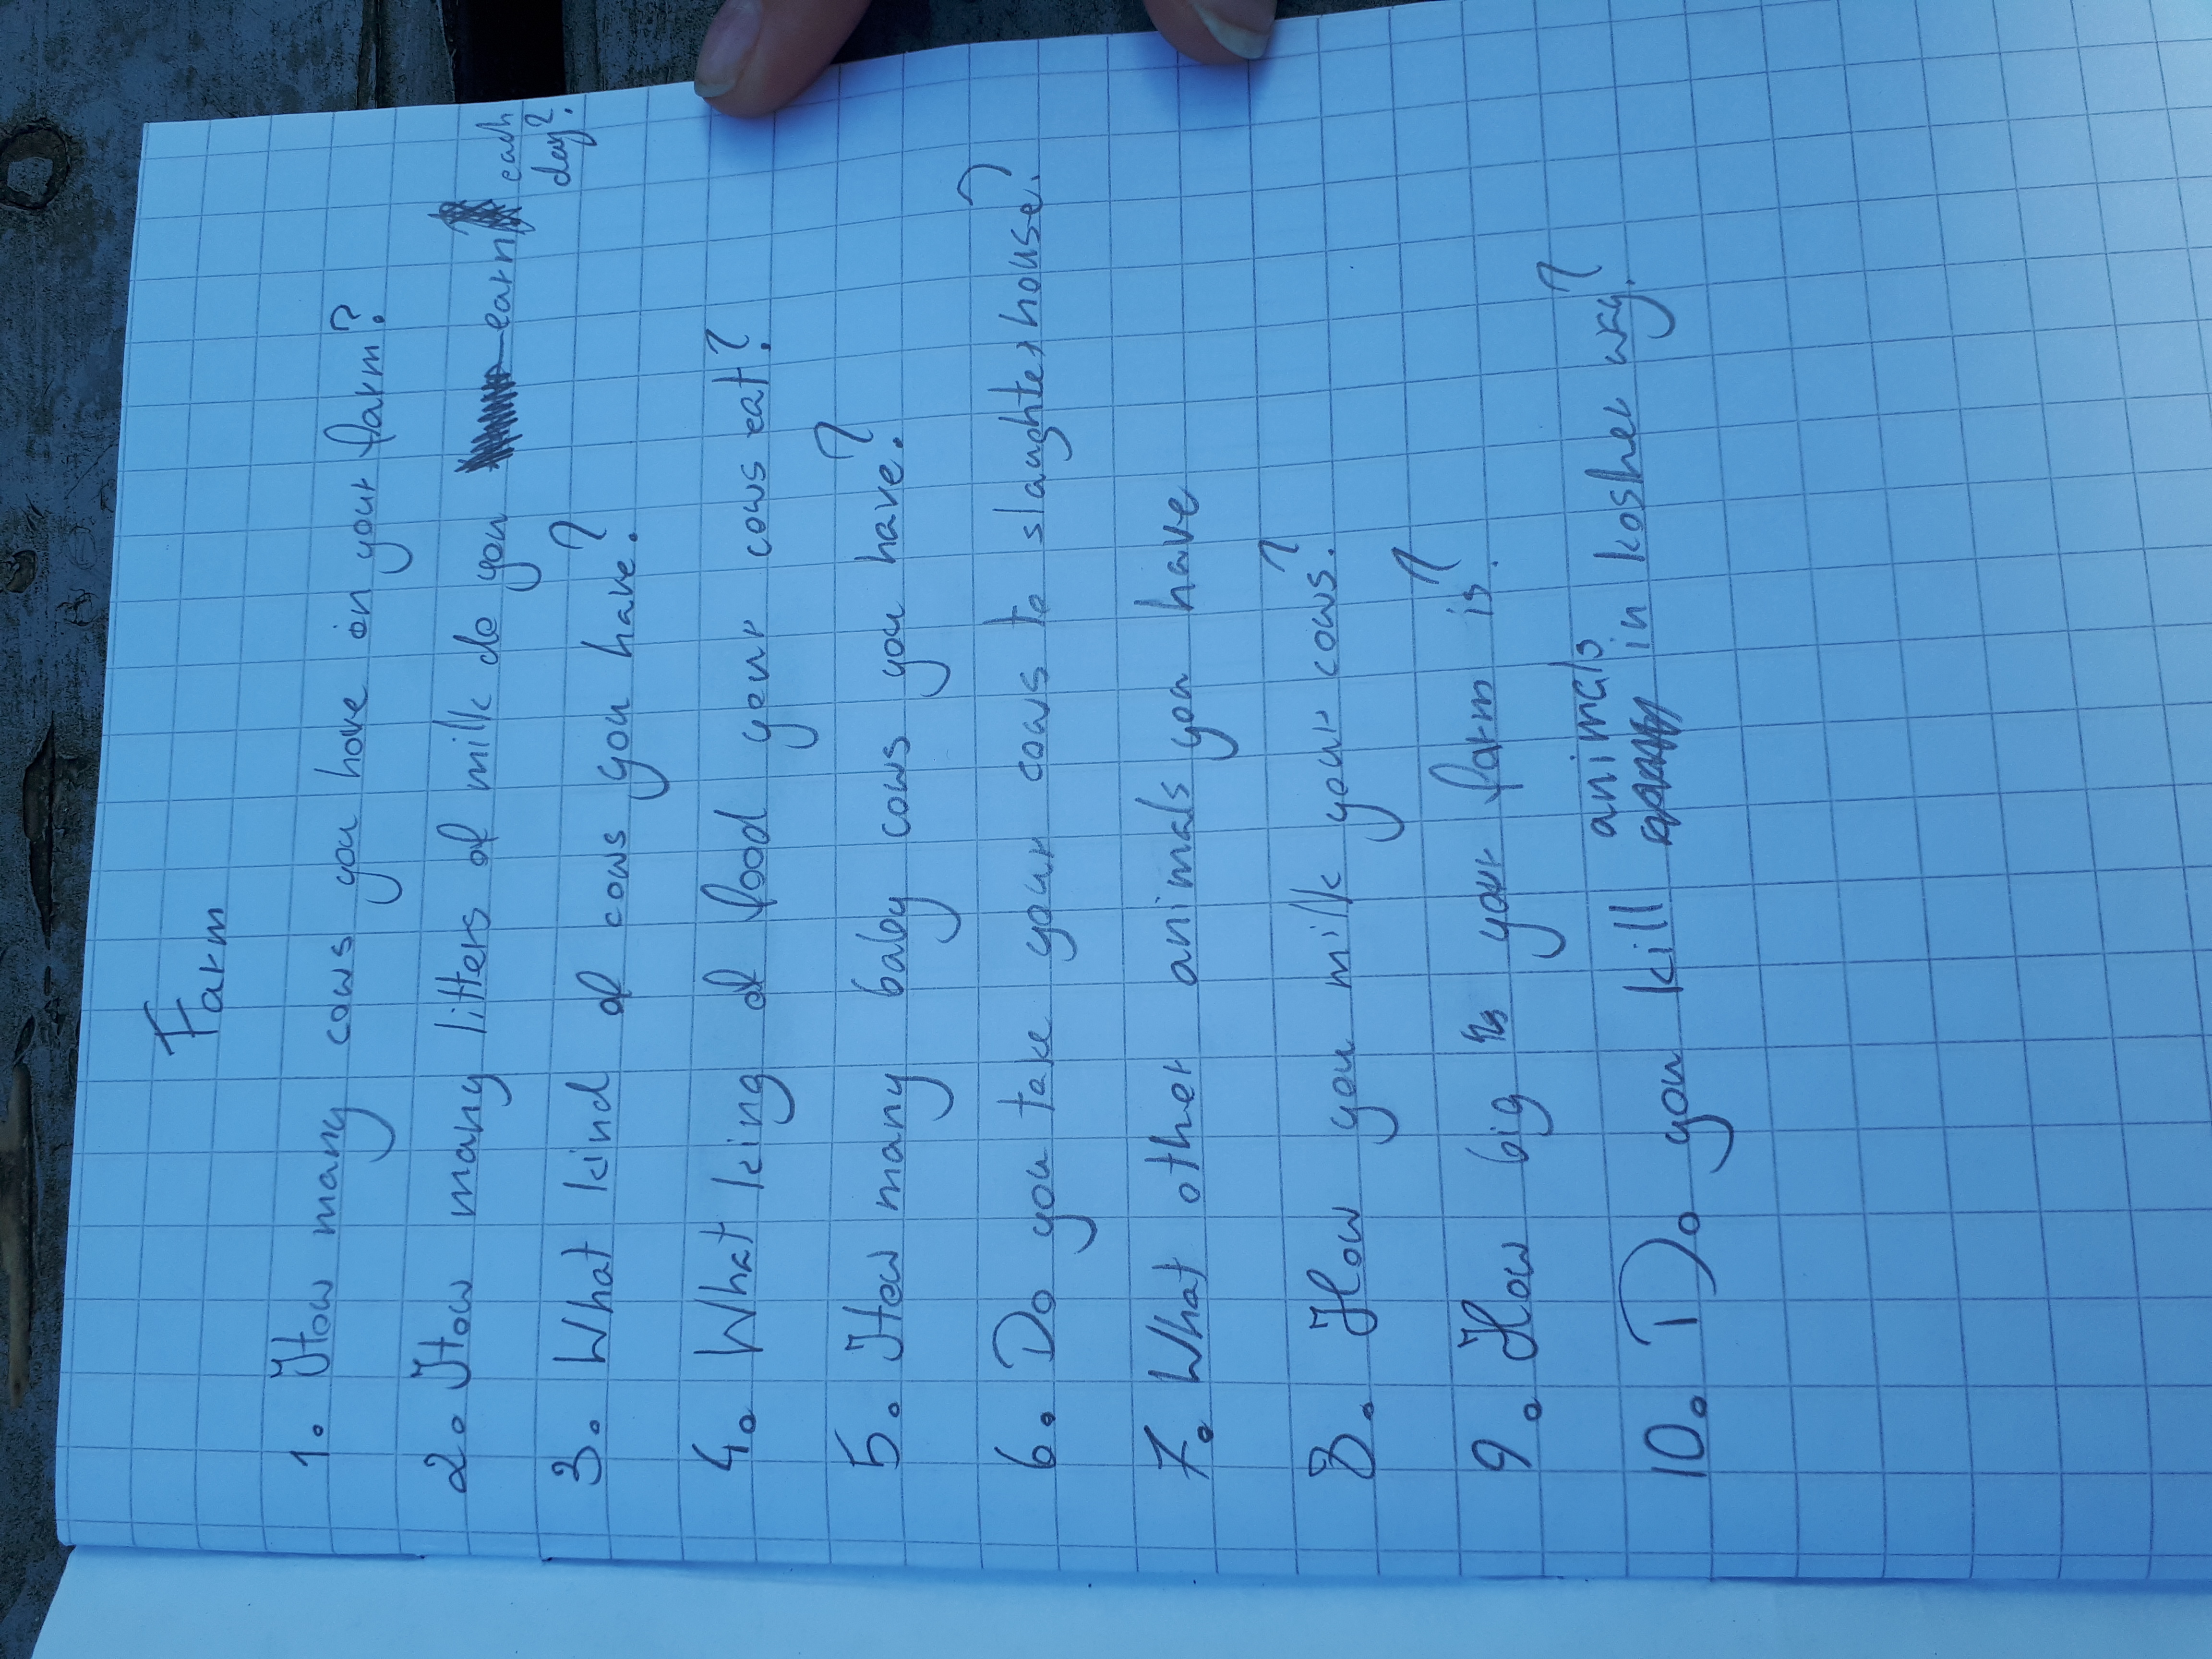 Farm
1. How many cows you have on your farm?
2. How many litters of milk do you earn each
day?
3. What kind of cows you have?
4. What king of food your cows eat?
5. How many baby cows you have?
6. Do you take your cows to slaughterhouse?
7. What other animals you have
8. How you milk your cows?
9. How big your farm is?
animals
10. Do you kill in kosher way?